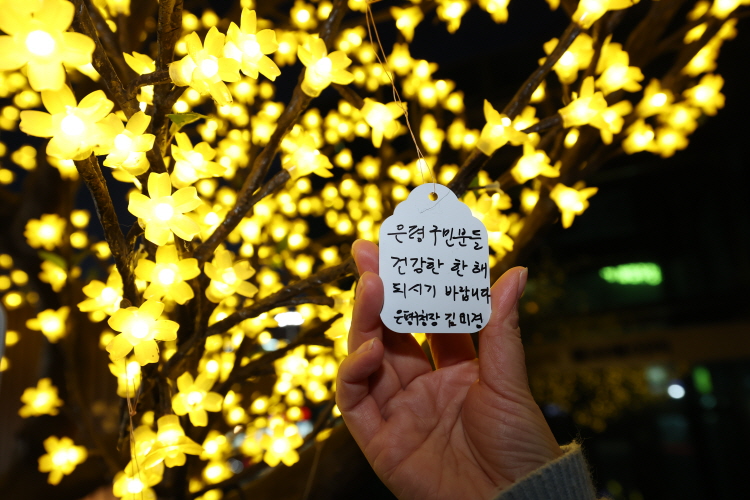 은평구민분들
건강한 한 해
되시기 바랍니다
은평구청장 김미경